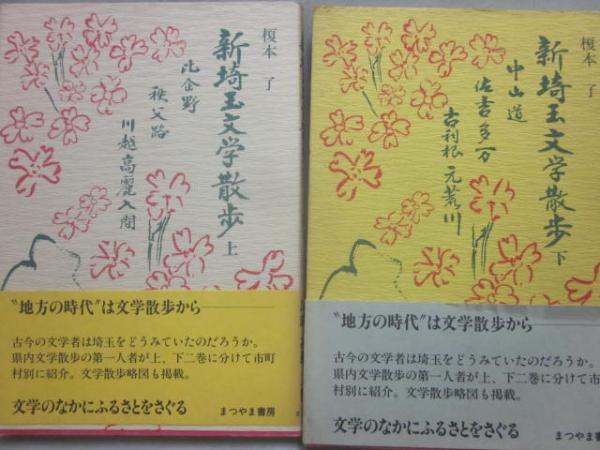 榎本 了
新埼玉文学散歩 上
比企野
秩父路
川越高麗入間
〝地方の時代〟は文学散歩から
古今の文学者は埼玉をどうみていたのだろうか。
県内文学散歩の第一人者が上、下二巻に分けて市町
村別に紹介。文学散歩略図も掲載。
文学のなかにふるさとをさぐる
まつやま書房
榎本 了
新埼玉文学散歩 下
中山道
佐吉多万
古利根 元荒川
〝地方の時代〟は文学散歩から
古今の文学者は埼玉をどうみていたのだろうか。
県内文学散歩の第一人者が上、下二巻に分けて市
村別に紹介。文学散歩略図も掲載。
文学のなかにふるさとをさぐる
まつやま書